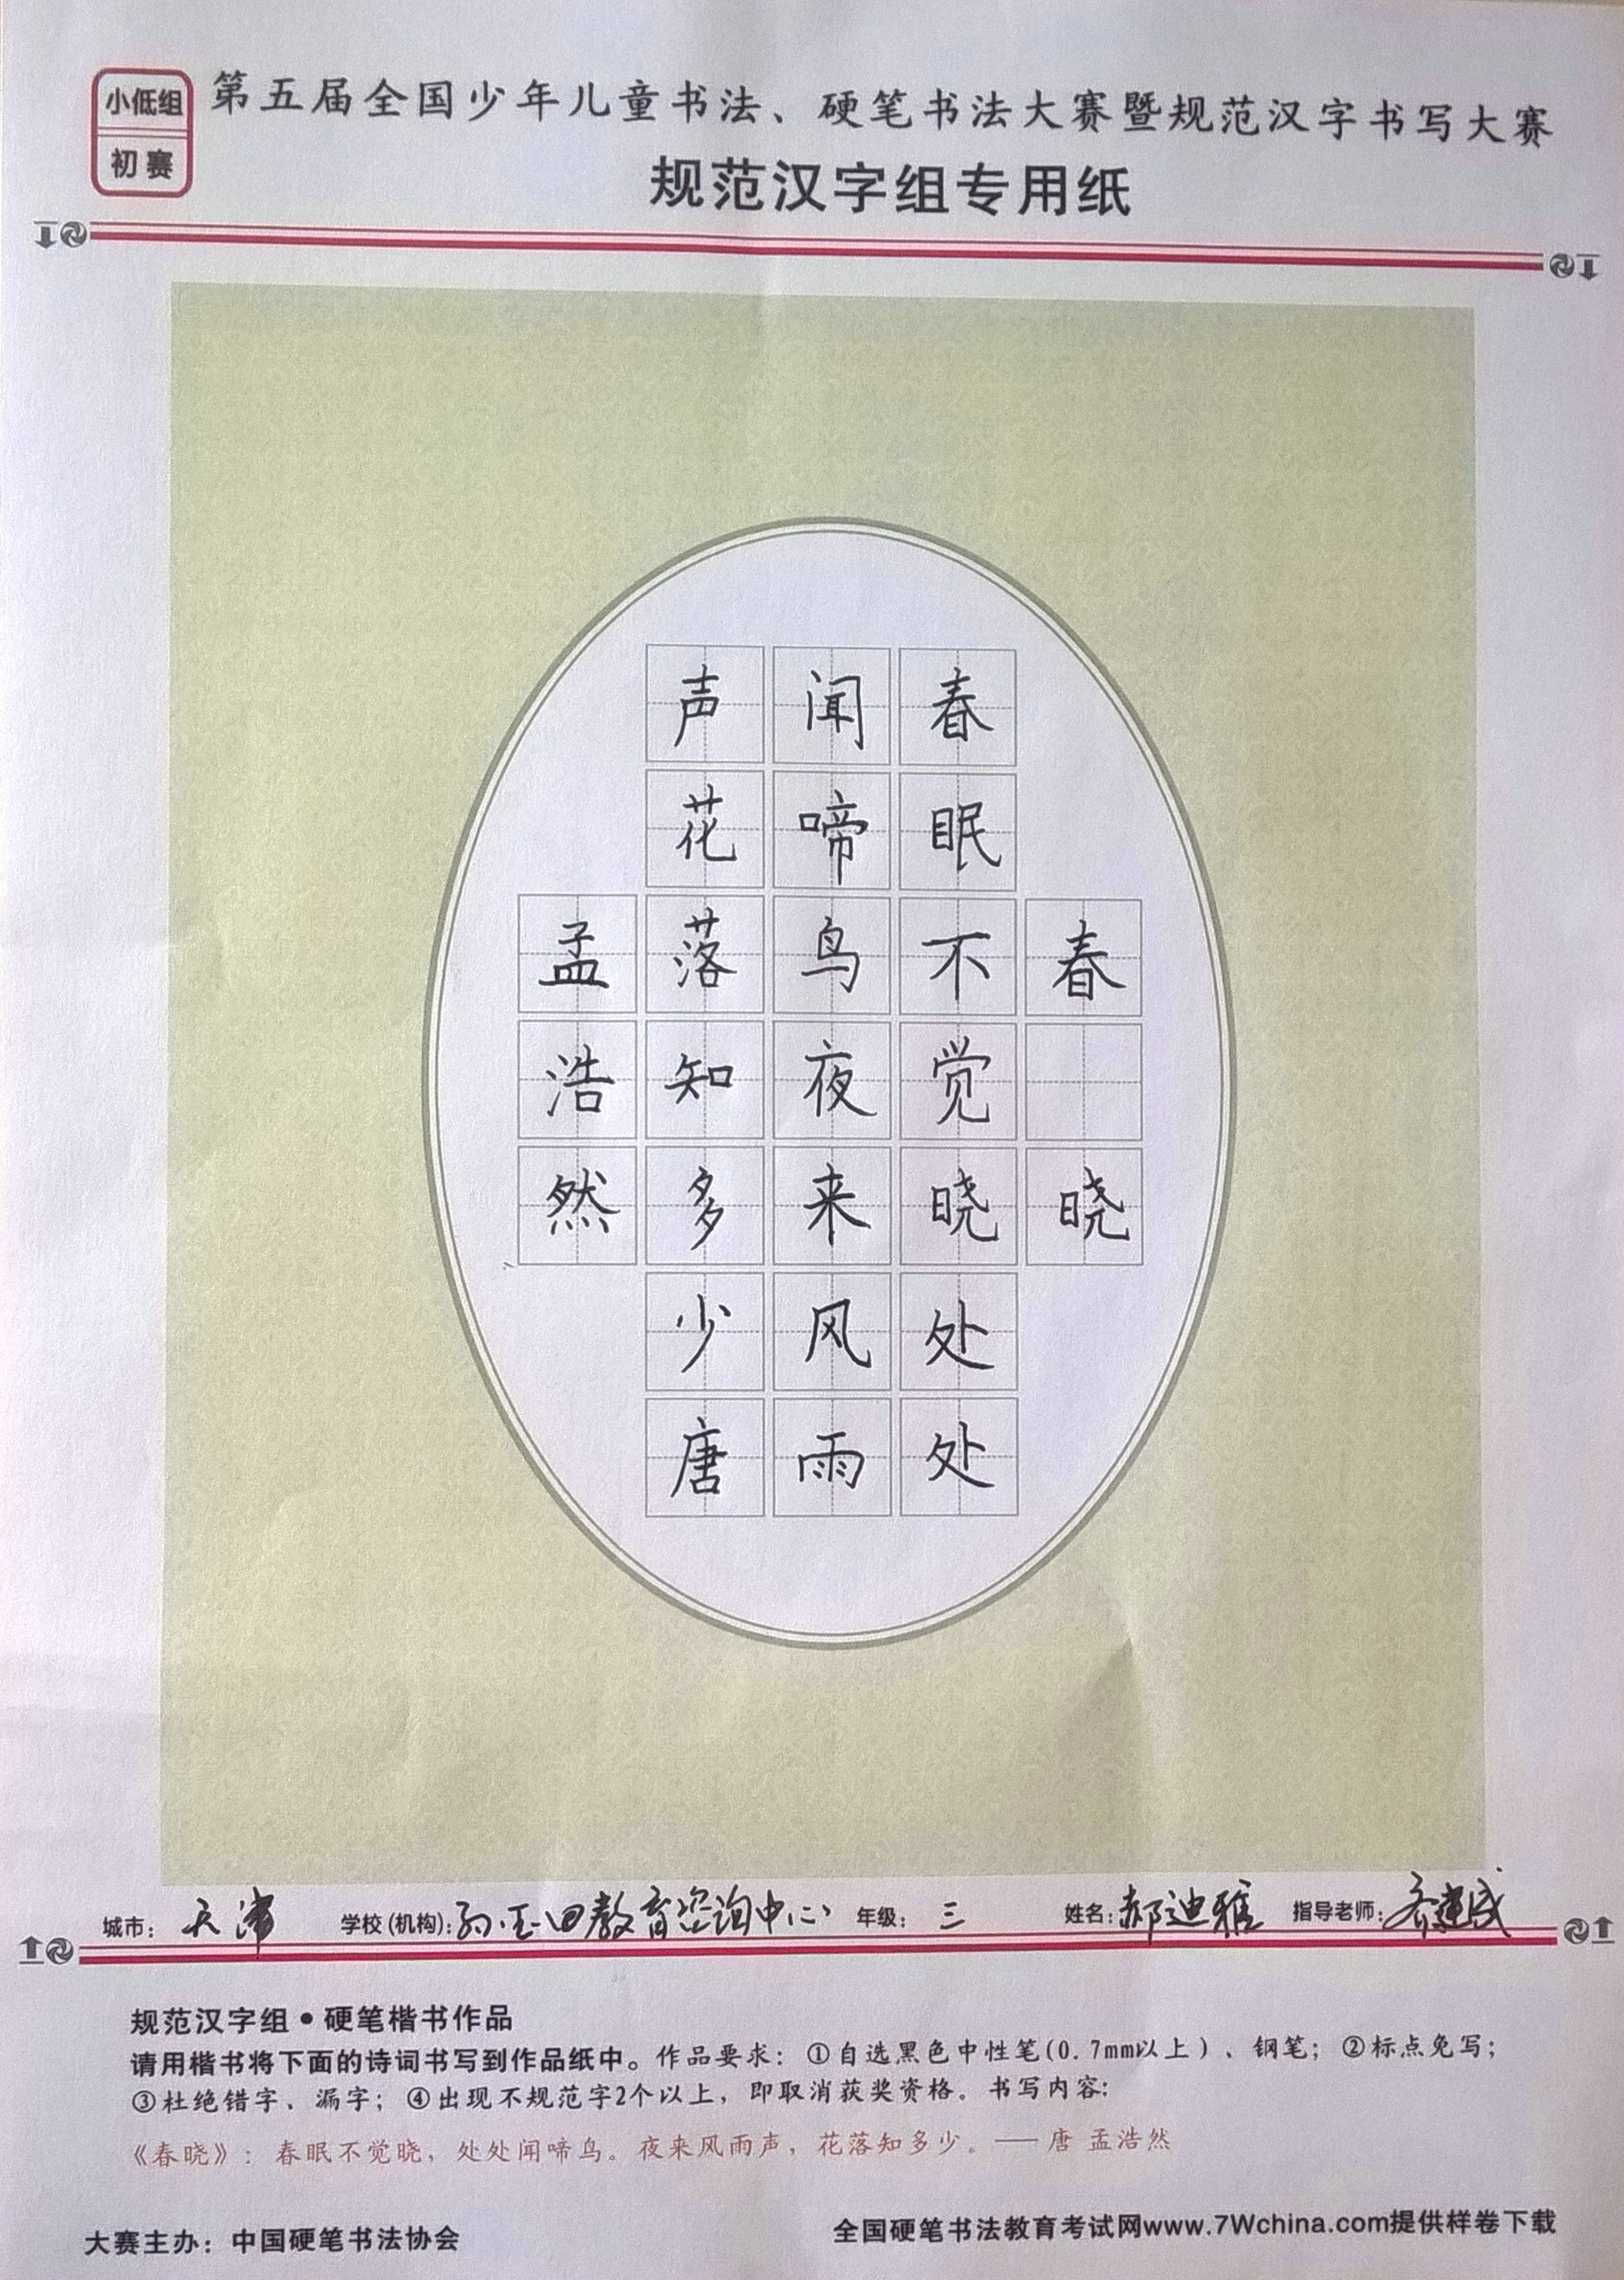 小低组
初赛
第五届全国少年儿童书法、硬笔书法大赛暨规范汉字书写大赛
规范汉字组专用纸
春晓
春眠不觉晓处处
闻啼鸟夜来风雨
声花落知多少唐
孟浩然
城市：天津 学校(机构)：孙玉田教育咨询中心 年级：三 姓名：郝迪雅 指导老师：齐建成
规范汉字组●硬笔楷书作品
请用楷书将下面的诗词书写到作品纸中。作品要求：①自选黑色中性笔(0.7mm以上)、钢笔；②标点免写；
③杜绝错字、漏字；④出现不规范字2个以上，即取消获奖资格。书写内容：
《春晓》：春眠不觉晓，处处闻啼鸟。夜来风雨声，花落知多少。——唐 孟浩然
大赛主办：中国硬笔书法协会
全国硬笔书法教育考试网www.7Wchina.com提供样卷下载